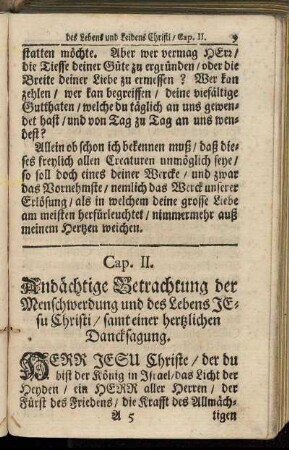 des Lebens und Leidens Christi / Cap. II. 9
statten möchte. Aber wer vermag HErr /
die Tieffe deiner Güte zu ergründen / oder die
Breite deiner Liebe zu ermessen? Wer kan
zehlen / wer kan begreiffen / deine vielfältige
Gutthaten / welche du täglich an uns gewen-
det hast / und von Tag zu Tag an uns wen-
dest?
Allein ob schon ich bekennen muß / daß die-
ses freylich allen Creaturen unmöglich seye /
so soll doch eines deiner Wercke / und zwar
das Vornehmste / nemlich das Werck unserer
Erlösung / als in welchem deine grosse Liebe
am meisten herfürleuchtet / nimmermehr auß
meinem Hertzen weichen.
Cap. II.
Andächtige Betrachtung der
Menschwerdung und des Lebens JE-
su Christi / samt einer hertzlichen
Dancksagung.
HERR JESU Christe / der du
bist der König in Israel / das Licht der
Heyden / ein HERR aller Herren / der
Fürst des Friedens / die Krafft des Allmäch-
A 5 tigen